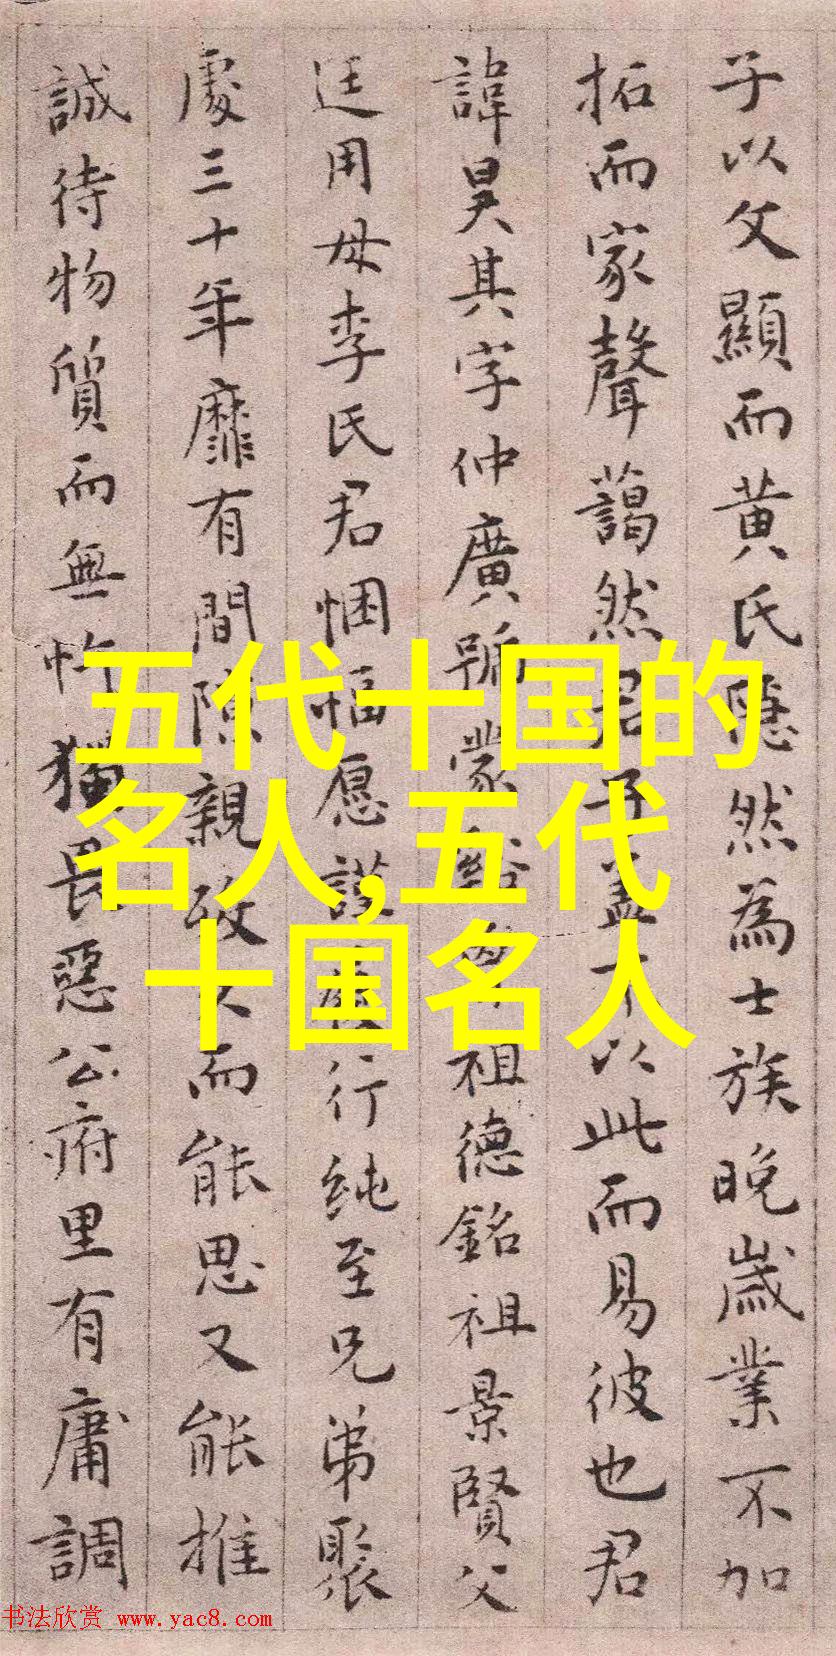 子以父顯而黄氏隱然為士族晚歲業不加
拓而家聲藹然君子蓋不以此而易彼也君
諱昊其字仲廣號蒙谷 祖德銘祖景賢父
廷用母李氏君悃愊愿謹 行純至兄弟聚
處三十年靡有間隙親故 而能思又能推
誠待物質而無忤獨畏惡公府里有庸調
五代十国的
名人,五代
十国名人
书法欣赏 www.yac8.com